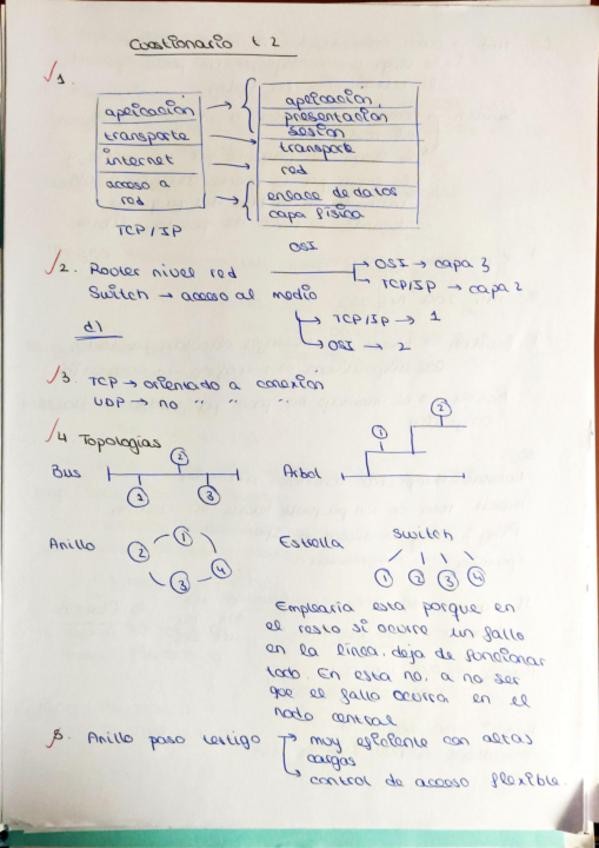 Cuestionario t 2
1.
aplicación
transporte
internet
acceso a
red
TCP/IP
aplicación,
presentación
sesión
transporte
red
enlace de datos
capa física
OSI
2. Router nivel red → OSI → capa 3
→ TCP/IP → capa 2
Switch → acceso al medio
→ TCP/IP → 1
→ OSI → 2
d)
3. TCP → orientado a conexión
UDP → no " " "
4 Topologías
Bus
2
1
3
Arbol
1
2
Anillo
1
2
3
4
Estrella
switch
1 2 3 4
Emplearia esta porque en
el resto si ocurre un fallo
en la línea, deja de funcionar
todo. En esta no, a no ser
que el fallo ocurra en el
nodo central
5. Anillo paso testigo → muy eficiente con altas
cargas
→ control de acceso flexible.